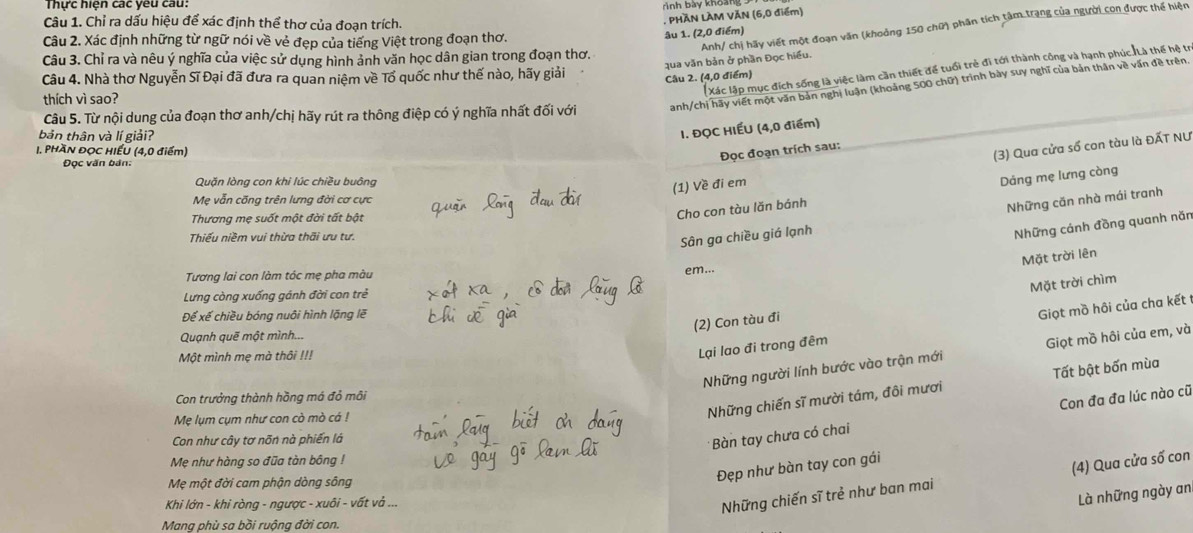 Thực hiện các yêu cầu:
Câu 1. Chỉ ra dấu hiệu để xác định thể thơ của đoạn trích.
Câu 2. Xác định những từ ngữ nói về vẻ đẹp của tiếng Việt trong đoạn thơ.
Câu 3. Chỉ ra và nêu ý nghĩa của việc sử dụng hình ảnh văn học dân gian trong đoạn thơ.
Câu 4. Nhà thơ Nguyễn Sĩ Đại đã đưa ra quan niệm về Tổ quốc như thế nào, hãy giải
thích vì sao?
Câu 5. Từ nội dung của đoạn thơ anh/chị hãy rút ra thông điệp có ý nghĩa nhất đối với
bản thân và lí giải?
I. PHẦN ĐỌC HIỂU (4,0 điểm)
Đọc văn bản:
Quặn lòng con khi lúc chiều buông
Mẹ vẫn cõng trên lưng đời cơ cực
Thương mẹ suốt một đời tất bật
Thiếu niềm vui thừa thãi ưu tư.
quặn lòng đau đớn
Tương lai con làm tóc mẹ pha màu
Lưng còng xuống gánh đời con trẻ
Để xế chiều bóng nuôi hình lặng lẽ
Quạnh quẽ một mình...
Một mình mẹ mà thôi !!!
xót xa, cô đơn lặng lẽ
khi về già
Con trưởng thành hồng má đỏ môi
Mẹ lụm cụm như con cò mò cá !
Con như cây tơ nõn nà phiến lá
Mẹ như hàng so đũa tàn bông !
Mẹ một đời cam phận dòng sông
Khi lớn - khi ròng - ngược - xuôi - vất vả ...
Mang phù sa bồi ruộng đời con.
tấm lòng biết ơn
gầy gò lam lũ
. PHẦN LÀM VĂN (6,0 điểm)
âu 1. (2,0 điểm)
Anh/ chị hãy viết một đoạn văn (khoảng 150 chữ) phân tích tâm trạng của người con được thể hiện
qua văn bản ở phần Đọc hiểu.
Câu 2. (4,0 điểm)
Xác lập mục đích sống là việc làm cần thiết để tuổi trẻ đi tới thành công và hạnh phúc. Là thế hệ tr
anh/chị hãy viết một văn bản nghị luận (khoảng 500 chữ) trình bày suy nghĩ của bản thân về vấn đề trên.
I. ĐỌC HIỂU (4,0 điểm)
Đọc đoạn trích sau:
(1) Về đi em
Cho con tàu lăn bánh
Sân ga chiều giá lạnh
em...
(2) Con tàu đi
Lại lao đi trong đêm
Những người lính bước vào trận mới
Những chiến sĩ mười tám, đôi mươi
Bàn tay chưa có chai
Đẹp như bàn tay con gái
Những chiến sĩ trẻ như ban mai
(3) Qua cửa sổ con tàu là ĐẤT NƯ
Dáng mẹ lưng còng
Những căn nhà mái tranh
Những cánh đồng quanh năm
Mặt trời lên
Mặt trời chìm
Giọt mồ hôi của cha kết t
Giọt mồ hôi của em, và
Tất bật bốn mùa
Con đa đa lúc nào cũ
(4) Qua cửa sổ con
Là những ngày an